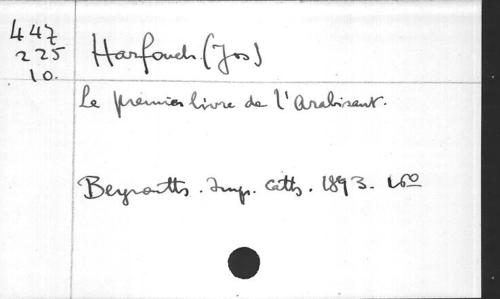 447
225
10.
Harfouch. (Jos)
Le premier livre de l'Arabisant.
Beyrouth. Imp. Cath. 1893. 16o